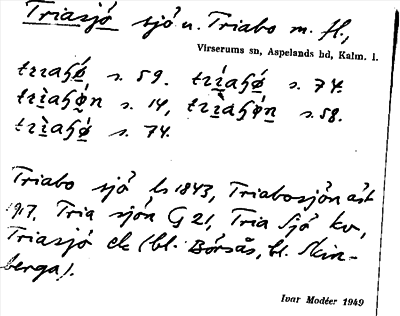 Triasjö sjö n. Triabo m. fl.,
Virserums sn, Aspelands hd, Kalm. l.
trɪaɧø s. 59. trìaɧø s. 74.
trìaɧøn s. 14, trìaɧøn s. 58.
trìaɧø s. 74.
Triabo sjö ls 1843, Triabosjön
1917. Tria sjön G 21, Tria Sjö kv,
Triasjö ek (bl. Börsås, bl. Skin-
berga).
Ivar Modéer 1949